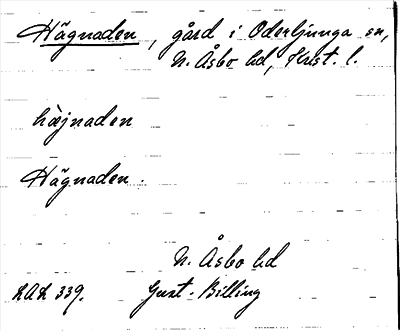 Hägnaden, gård i Oderljunga sn,
N. Åsbo hd, Krist. l.
hæjnaden
Hägnaden.
N. Åsbo hd
LAL 339. Gust. Billing